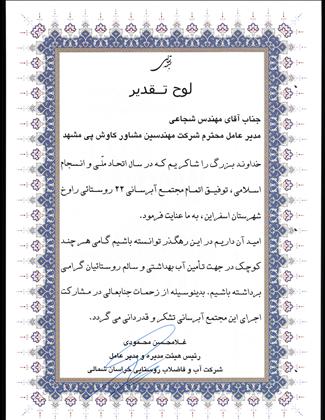 لوح تـقدیر
جناب آقای مهندس شجاعی
مدیر عامل محترم شرکت مهندسین مشاور کاوش پی مشهد
خداوند بزرگ را شاکریم که در سال اتحاد ملّی و انسجام
اسلامی، توفیق اتمام مجتمع آبرسانی ۲۲ روستائی راوخ
شهرستان اسفراین، به ما عنایت فرمود.
امید آن داریم در این رهگذر توانسته باشیم گامی هر چند
کوچک در جهت تأمین آب بهداشتی و سالم روستائیان گرامی
برداشته باشیم. بدینوسیله از زحمات جنابعالی در مشارکت
اجرای این مجتمع آبرسانی تشکر و قدردانی می گردد.
غلامحسن محمودی
رئیس هیئت مدیره و مدیر عامل
شرکت آب و فاضلاب روستایی خراسان شمالی